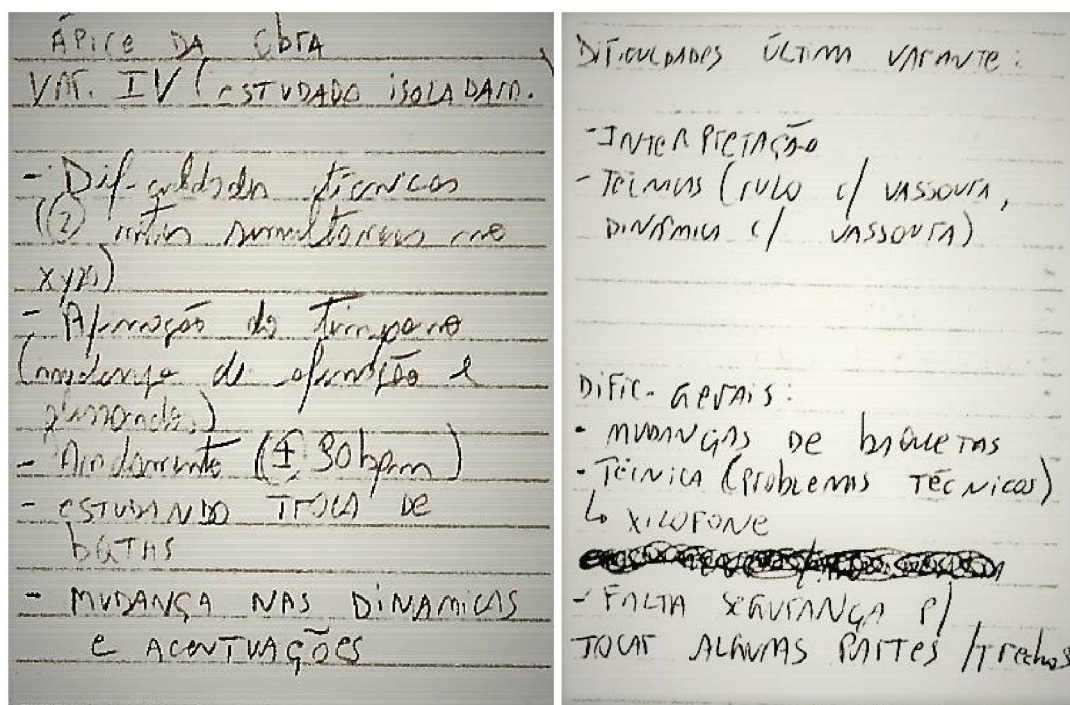 ÁPICE DA ObrA
VAR. IV (ESTUDADO ISOLADAM.)
- Dificuldades técnicas
((2) notas simultâneas no
xylo)
- Afinação do Tímpano
(mudança de afinação e
glissandos)
- Andamento (± 90bpm)
- ESTUDANDO TROCA DE
bQTAS
- MUDANÇA NAS DINAMICAS
E ACENTUAÇÕES
DIFICULDADES ÚLTIMA VARIANTE:
- INTERPRETAÇÃO
- TÉCNICAS (RULO C/ VASSOURA,
DINÂMICA C/ VASSOURA)
DIFIC. GERAIS:
- MUDANÇAS DE bAQUETAS
- TÉCNICA (PROBLEMAS TÉCNICOS)
↳ XILOFONE
- FALTA SEGURANÇA P/
TOCAR ALGUMAS PARTES /Trechos